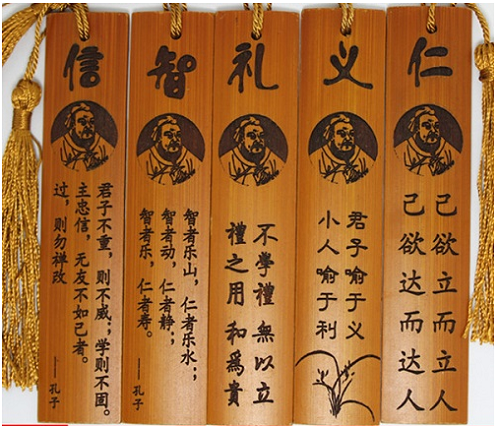 仁
己欲立而立人
己欲达而达人
义
君子喻于义
小人喻于利
礼
不學禮 無以立
禮之用 和爲貴
智
智者乐山，仁者乐水；
智者动，仁者静；
智者乐，仁者寿。
——孔子
信
君子不重，则不威；学则不固。
主忠信，无友不如己者。
过，则勿禅改
——孔子